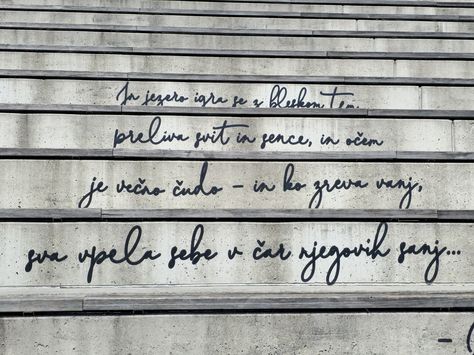 In jezero igra se z bleskom tem,
preliva svit in sence, in očem
je večno čudo – in ko zreva vanj,
sva vpela sebe v čar njegovih sanj...
–